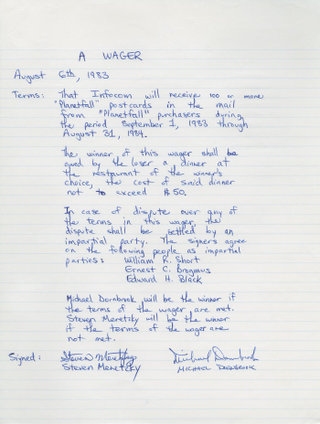 A WAGER
August 6th, 1983
Terms: That Infocom will receive 100 or more
"Planetfall" postcards in the mail
from "Planetfall" purchasers during
the period September 1, 1983 through
August 31, 1984.
The winner of this wager shall be
owed by the loser a dinner at
the restaurant of the winner's
choice, the cost of said dinner
not to exceed $50.
In case of dispute over any of
the terms in this wager, the
dispute shall be settled by an
impartial party. The signers agree
on the following people as impartial
parties: William R. Short
Ernest C. Brogmus
Edward H. Black
Michael Dornbrook will be the winner if
the terms of the wager are met.
Steven Meretzky will be the winner
if the terms of the wager are
not met.
Signed: Steven Meretzky Michael Dornbrook
Steven Meretzky MICHAEL DORNBROOK